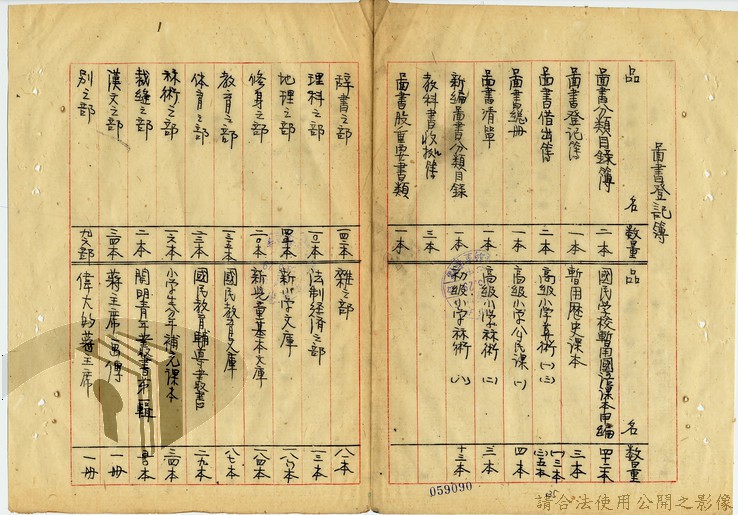 1
圖書登記簿
品名 數量 品名 數量
圖書分類目錄簿 二本 國民学校暫用國語課本甲編
圖書登記簿 一本 暫用歷史課本 三本
圖書借出簿 二本 高級小学算術(一)(三)
圖書總冊 一本 高級小学公民課(一) 四本
圖書清單 一本 高級小学算術(二) 三本
新編圖書分類目錄 一本 初級小学算術(八) 十三本
教科書收拠簿 三本
圖書股重要書類 一本
辞書之部 雜之部 八本
理科之部 法制経済之部 一三本
地理之部 新小学文庫
修身之部 二〇本 新児童基本文庫 一八四本
教育之部 三五本 國民教育文庫 八七本
体育之部 一三本 國民教育輔導叢書 二九本
算術之部 一六本 小学生分年補充課本 三四本
裁縫之部 二本 開明青年叢書第一輯
漢文之部 三四本 蔣主席画傳 一冊
別之部 偉大的蔣主席 一冊
059090
請合法使用公開之影像